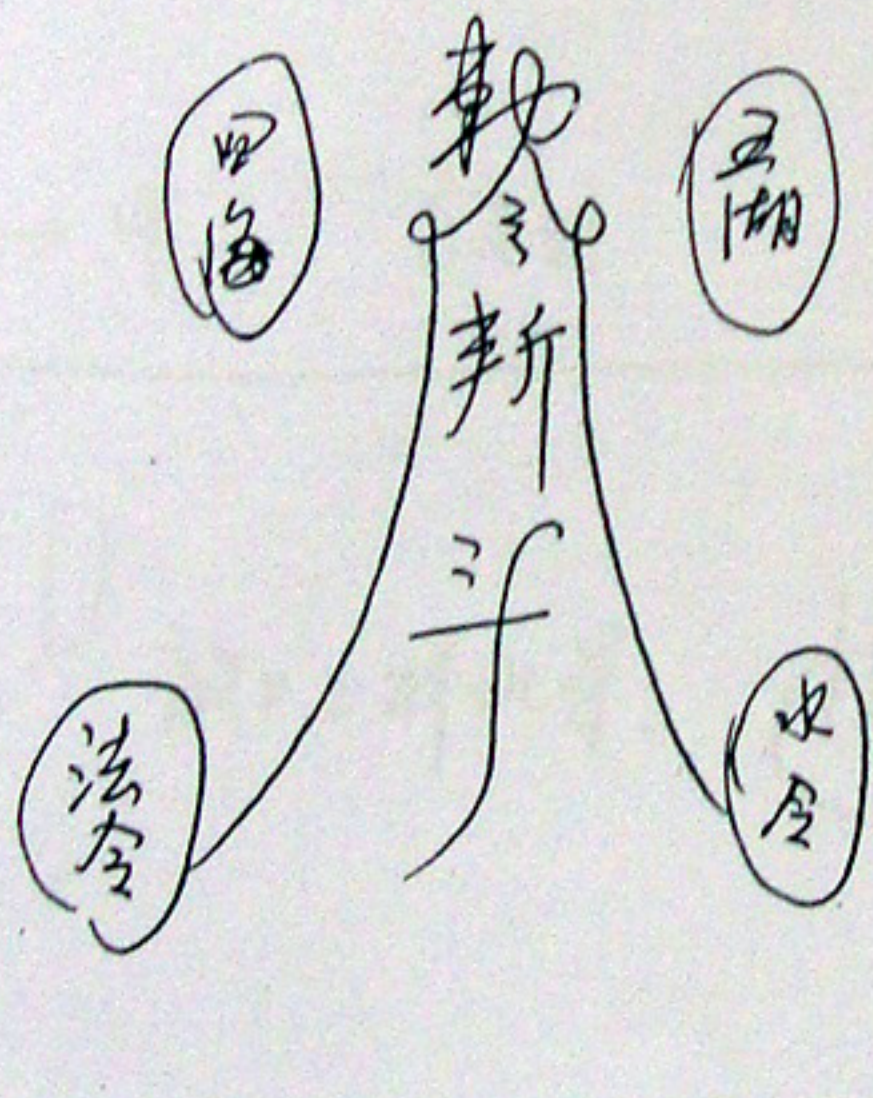 四海
敕令
五湖
斬
法令
水令